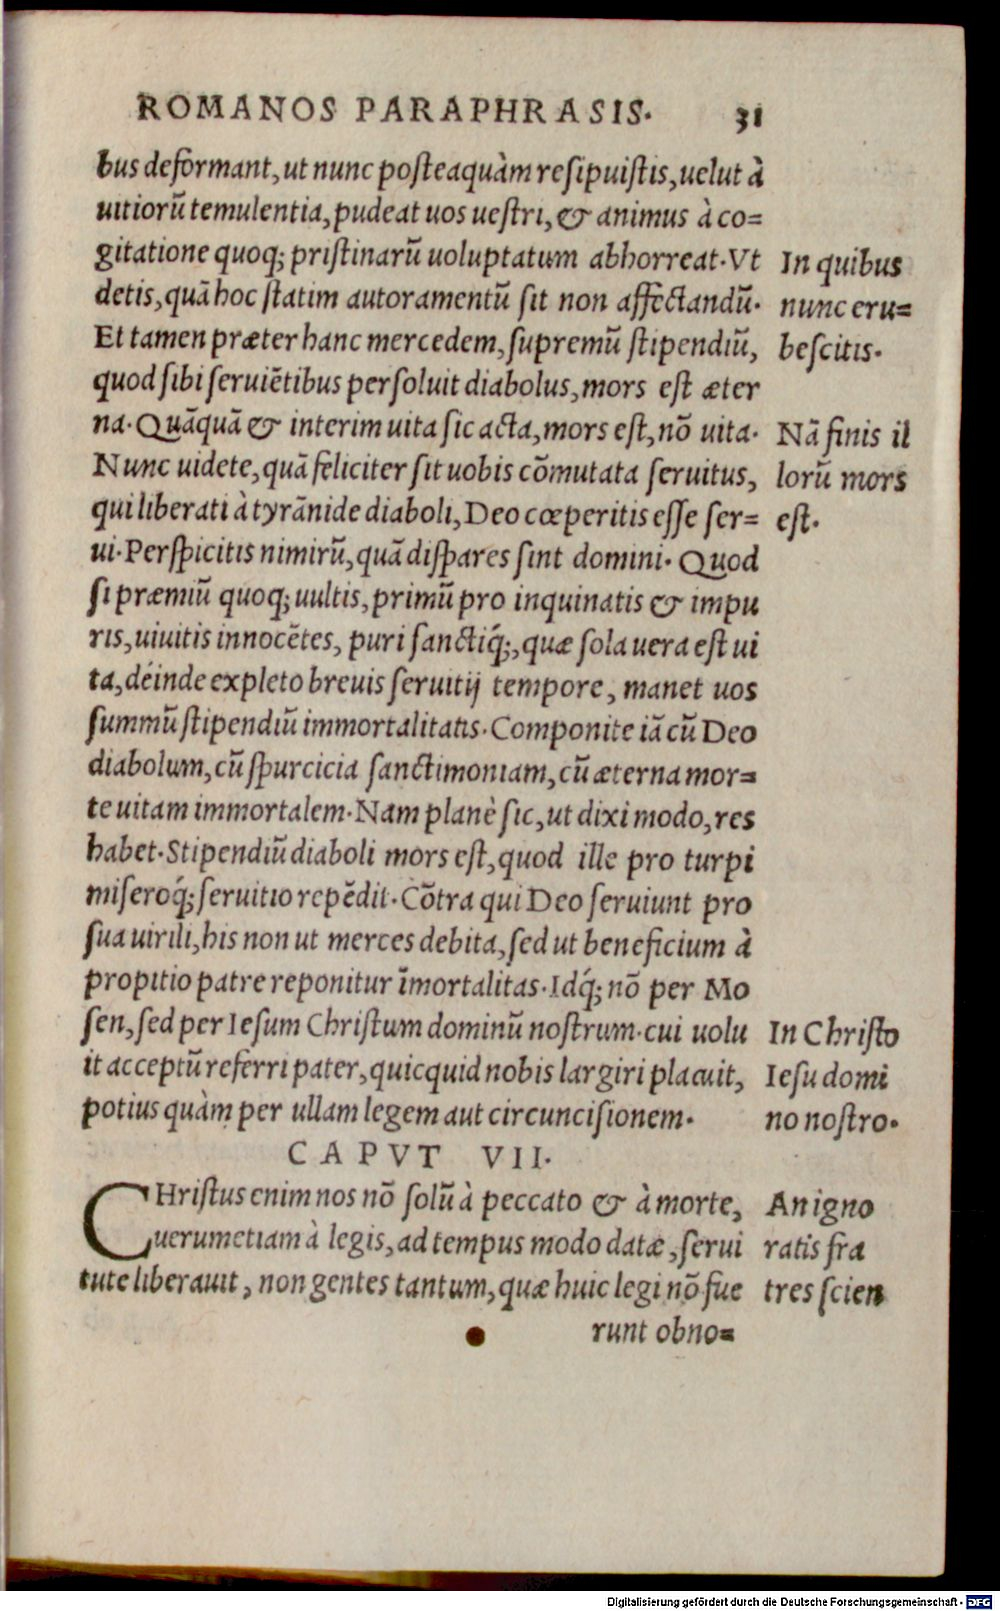 ROMANOS PARAPHRASIS. 31
bus deformant, ut nunc posteaquàm resipuistis, uelut à
uitiorũ temulentia, pudeat uos uestri, & animus à co=
gitatione quoq; pristinarũ uoluptatum abhorreat. Vt
detis, quã hoc statim autoramentũ sit non affectandũ.
Et tamen præter hanc mercedem, supremũ stipendiũ,
quod sibi seruiẽtibus persoluit diabolus, mors est æter
na. Quãquã & interim uita sic acta, mors est, nõ uita.
Nunc uidete, quã feliciter sit uobis cõmutata seruitus,
qui liberati à tyrãnide diaboli, Deo cœperitis esse ser=
ui. Perspicitis nimirũ, quã dispares sint domini. Quod
si præmiũ quoq; uultis, primũ pro inquinatis & impu
ris, uiuitis innocẽtes, puri sanctiq́;, quæ sola uera est ui
ta, déinde expleto breuis seruitij tempore, manet uos
summũ stipendiũ immortalitatis. Componite iã cũ Deo
diabolum, cũ spurcicia sanctimoniam, cũ æterna mor=
te uitam immortalem. Nam planè sic, ut dixi modo, res
habet. Stipendiũ diaboli mors est, quod ille pro turpi
miseroq́; seruitio repẽdit. Cõtra qui Deo seruiunt pro
sua uirili, his non ut merces debita, sed ut beneficium à
propitio patre reponitur ĩmortalitas. Idq́; nõ per Mo
sen, sed per Iesum Christum dominũ nostrum. cui uolu
it acceptũ referri pater, quicquid nobis largiri placuit,
potius quàm per ullam legem aut circuncisionem.
CAPVT VII.
CHristus enim nos nõ solũ à peccato & à morte,
uerumetiam à legis, ad tempus modo datæ, serui
tute liberauit, non gentes tantum, quæ huic legi nõ fue
runt obno=
In quibus
nunc eru=
bescitis.
Nã finis il
lorũ mors
est.
In Christo
Iesu domi
no nostro.
An igno
ratis fra
tres scien
Digitalisierung gefördert durch die Deutsche Forschungsgemeinschaft - DFG